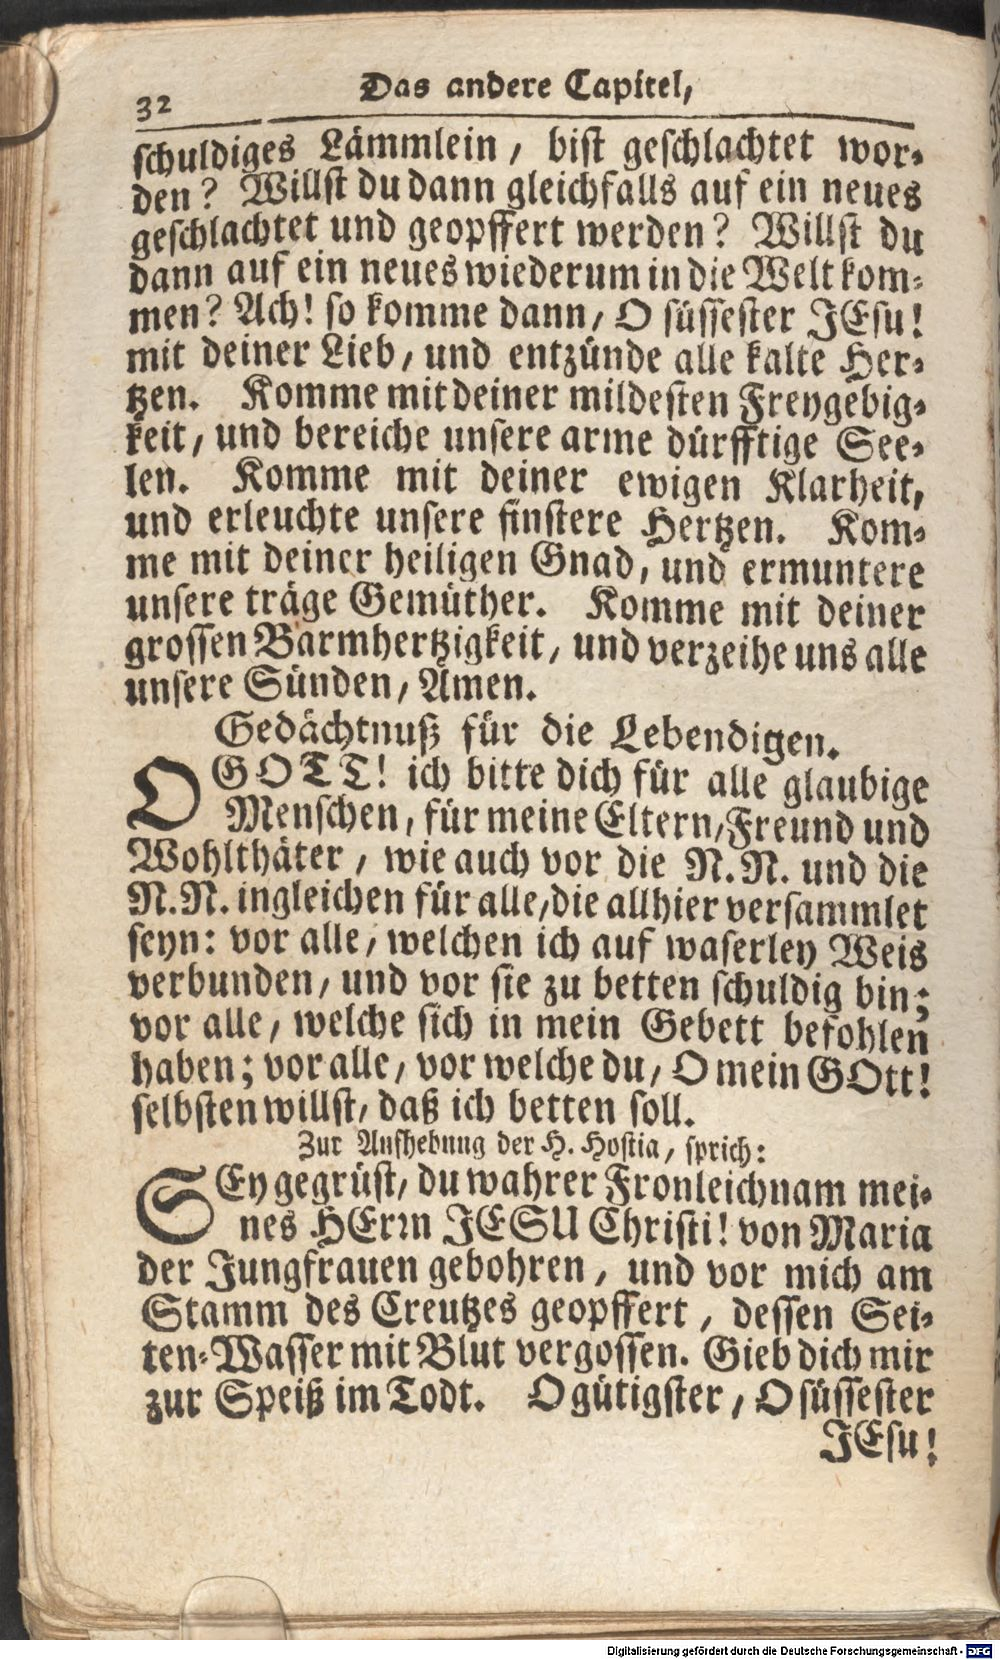 32
Das andere Capitel,
schuldiges Lämmlein, bist geschlachtet wor-
den? Willst du dann gleichfalls auf ein neues
geschlachtet und geopffert werden? Willst du
dann auf ein neues wiederum in die Welt kom-
men? Ach! so komme dann, O süssester JEsu!
mit deiner Lieb, und entzünde alle kalte Her-
tzen. Komme mit deiner mildesten Freygebig-
keit, und bereiche unsere arme dürfftige See-
len. Komme mit deiner ewigen Klarheit,
und erleuchte unsere finstere Hertzen. Kom-
me mit deiner heiligen Gnad, und ermuntere
unsere träge Gemüther. Komme mit deiner
grossen Barmhertzigkeit, und verzeihe uns alle
unsere Sünden, Amen.
Gedächtnuß für die Lebendigen.
O GOTT! ich bitte dich für alle glaubige
Menschen, für meine Eltern, Freund und
Wohlthäter, wie auch vor die N. N. und die
N. N. ingleichen für alle, die allhier versammlet
seyn: vor alle, welchen ich auf waserley Weis
verbunden, und vor sie zu betten schuldig bin;
vor alle, welche sich in mein Gebett befohlen
haben; vor alle, vor welche du, O mein GOtt!
selbsten willst, daß ich betten soll.
Zur Aufhebung der H. Hostia, sprich:
SEy gegrüst, du wahrer Fronleichnam mei-
nes HErrn JESU Christi! von Maria
der Jungfrauen gebohren, und vor mich am
Stamm des Creutzes geopffert, dessen Sei-
ten-Wasser mit Blut vergossen. Gieb dich mir
zur Speiß im Todt. O gütigster, O süssester
JEsu!
Digitalisierung gefördert durch die Deutsche Forschungsgemeinschaft - DFG